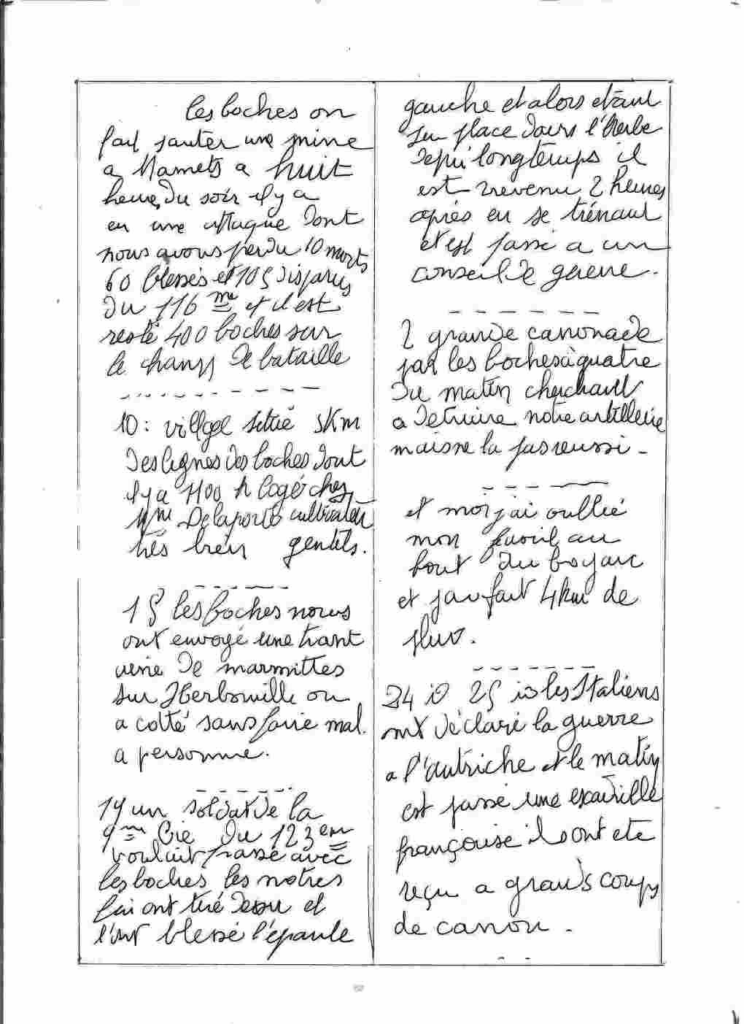 les boches on
fait sauter une mine
a Mametz a huit
heure du soir il y a
eu une attaque dont
nous avons perdu 10 morts
60 blessés et 105 disparus
du 116 me et il est
resté 400 boches sur
le champ de bataille
10: village situé 5Km
des lignes des boches dont
il y a 1100 h logé chez
Mme Delaporte cultivateur
trés bien gentils.
15 les boches nous
ont envoyé une trant
aine de marmittes
sur Herbouville ou
a cotté sans faire mal
a personne.
19 un soldat de la
9me Cie du 123 em
voulait passé avec
les boches les notres
lui ont tiré dessu et
l'ont blessé l'épaule
gauche et alors etant
sur place dans l'herbe
depui longtemps il
est revenu 2 heures
après en se trénant
et est passé a un
conseil de guerre.
2 grande canonade
par les boches à quatre
du matin cherchant
a detruire notre artillerie
mais ne la pas reussi -
et moi j'ai oullié
mon fusil au
bout du boyau
et j'au fait 4km de
plus.
24 i0 25 is les Italiens
ont déclaré la guerre
a l'autriche et le matin
est passé une escadrille
françouse ils ont ete
reçu a grands coups
de canon.